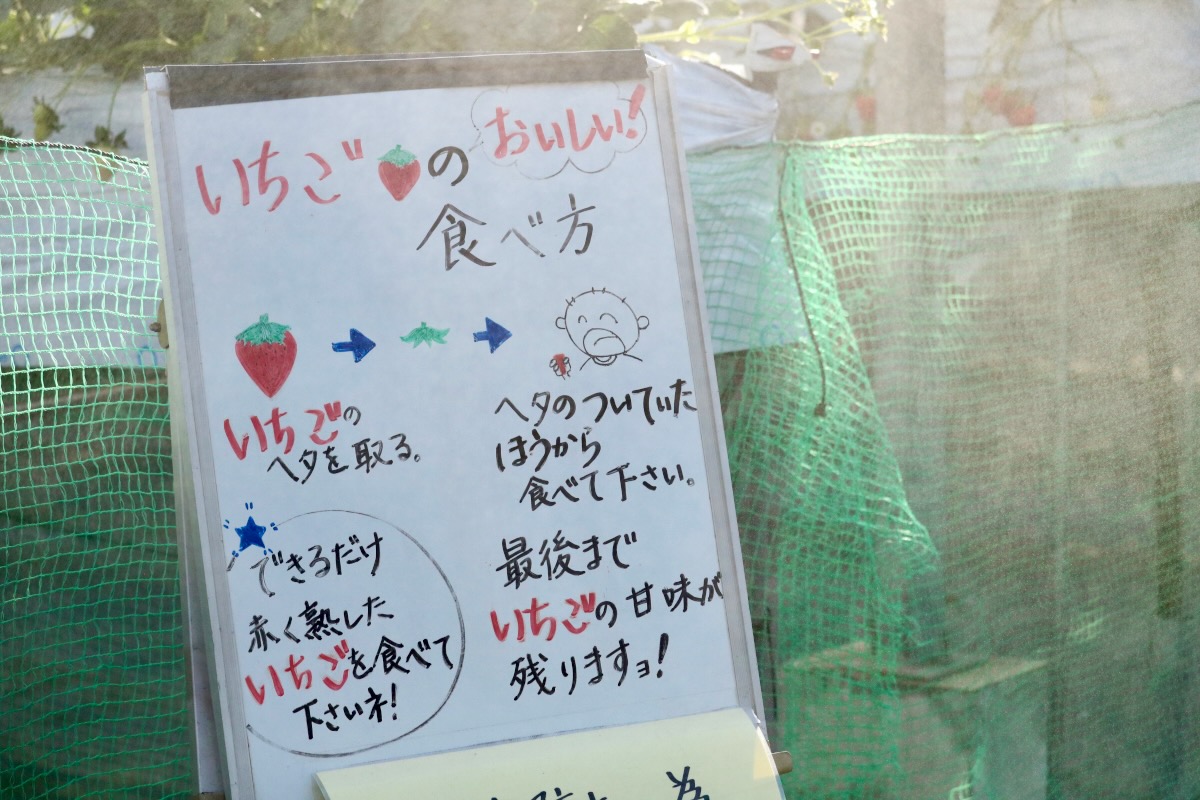 いちごの おいしい!
食べ方
いちごの
ヘタを取る。
ヘタのついていた
ほうから
食べて下さい。
最後まで
いちごの甘味が
残りますョ!
できるだけ
赤く熟した
いちごを食べて
下さいネ!
為